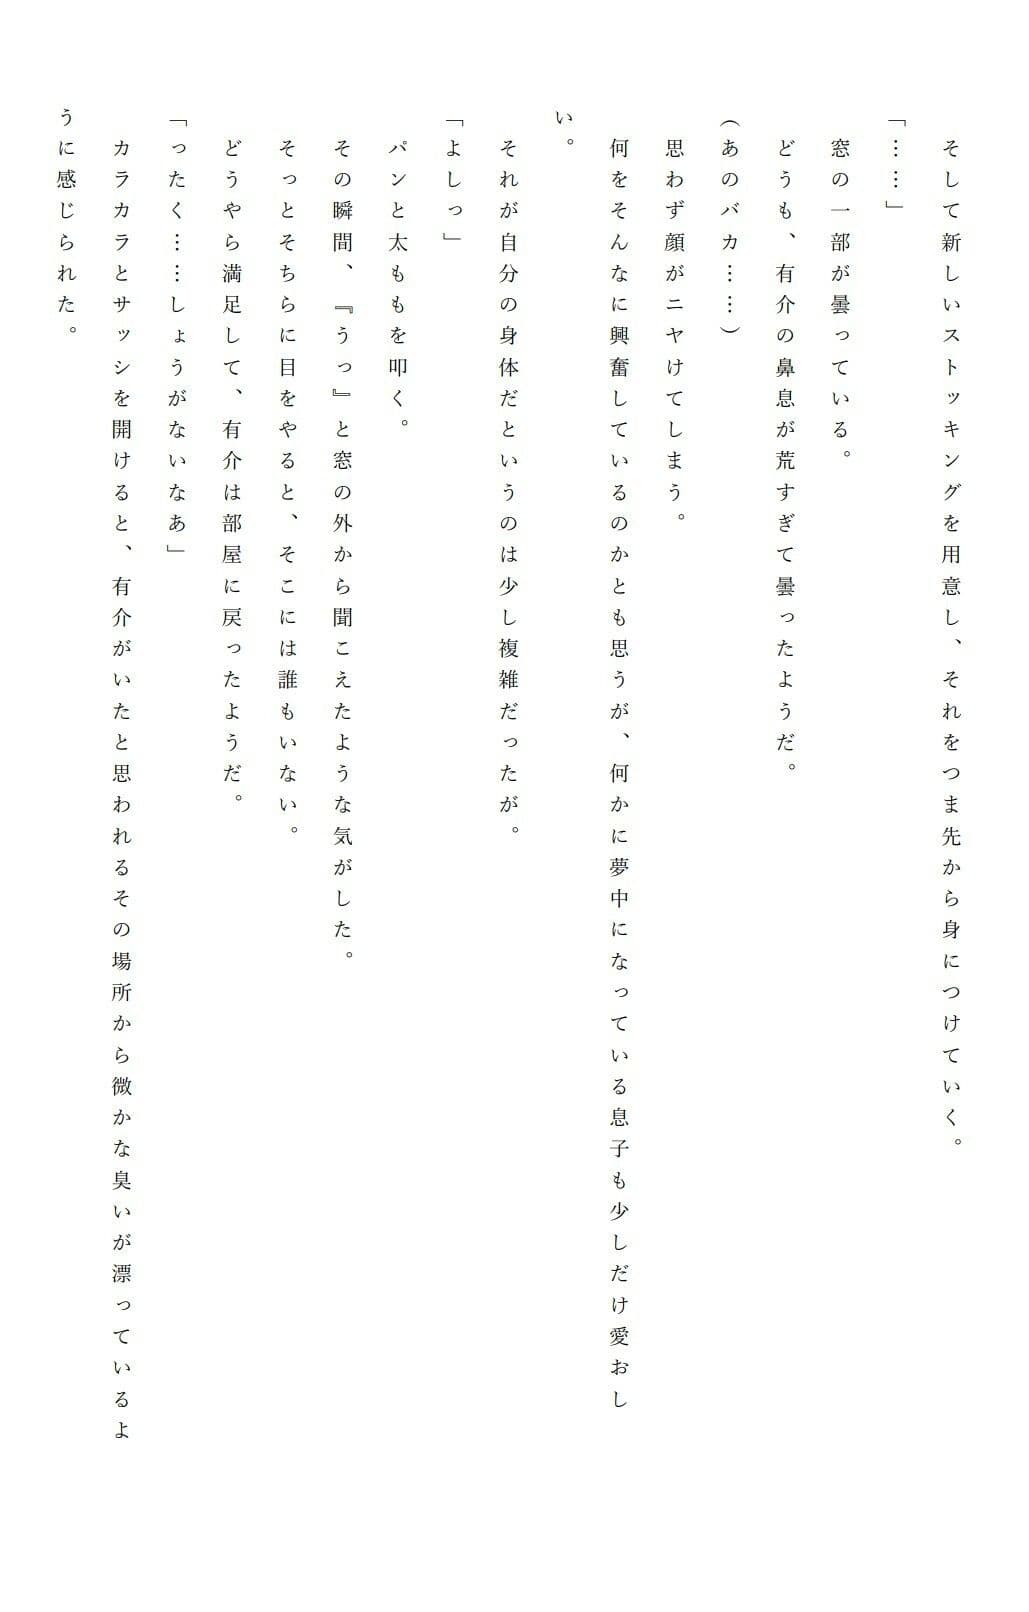 そして新しいストッキングを用意し、それをつま先から身につけていく。
「……」
窓の一部が曇っている。
どうも、有介の鼻息が荒すぎて曇ったようだ。
(あのバカ……)
思わず顔がニヤけてしまう。
何をそんなに興奮しているのかとも思うが、何かに夢中になっている息子も少しだけ愛おし
い。
それが自分の身体だというのは少し複雑だったが。
「よしっ」
パンと太ももを叩く。
その瞬間、『うっ』と窓の外から聞こえたような気がした。
そっとそちらに目をやると、そこには誰もいない。
どうやら満足して、有介は部屋に戻ったようだ。
「ったく……しょうがないなあ」
カラカラとサッシを開けると、有介がいたと思われるその場所から微かな臭いが漂っているよ
うに感じられた。